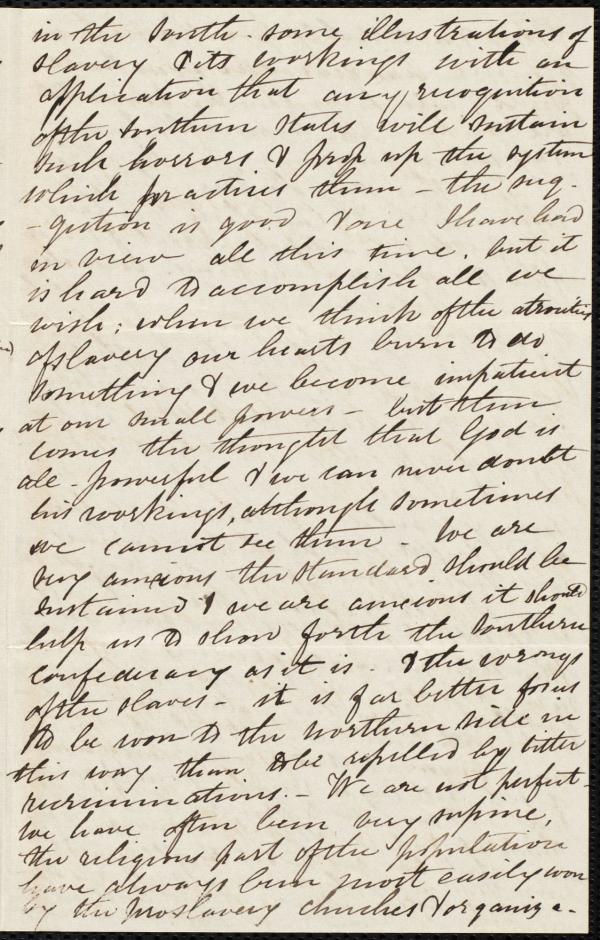 in the South - some illustrations of
slavery & its workings with an
application that any recognition
of the Southern States will sustain
such horrors & prop up the system
which practices them - the sug-
-gestion is good & one I have had
in view all this time, but it
is hard to accomplish all we
wish; when we think of the atrocities
of slavery our hearts burn to do
something & we become impatient
at our small powers - but then
comes the thought that God is
all-powerful & we can never doubt
his workings, although sometimes
we cannot see them - We are
very anxious the Standard should be
sustained & we are anxious it should
help us to show forth the Southern
confederacy as it is. & the wrongs
of the slaves - it is far better for us
to be won to the northern side in
this way than to be repelled by bitter
recriminations. - We are not perfect -
we have often been very supine,
the religious part of the population
have always been most easily won
by the proslavery churches & organiza-